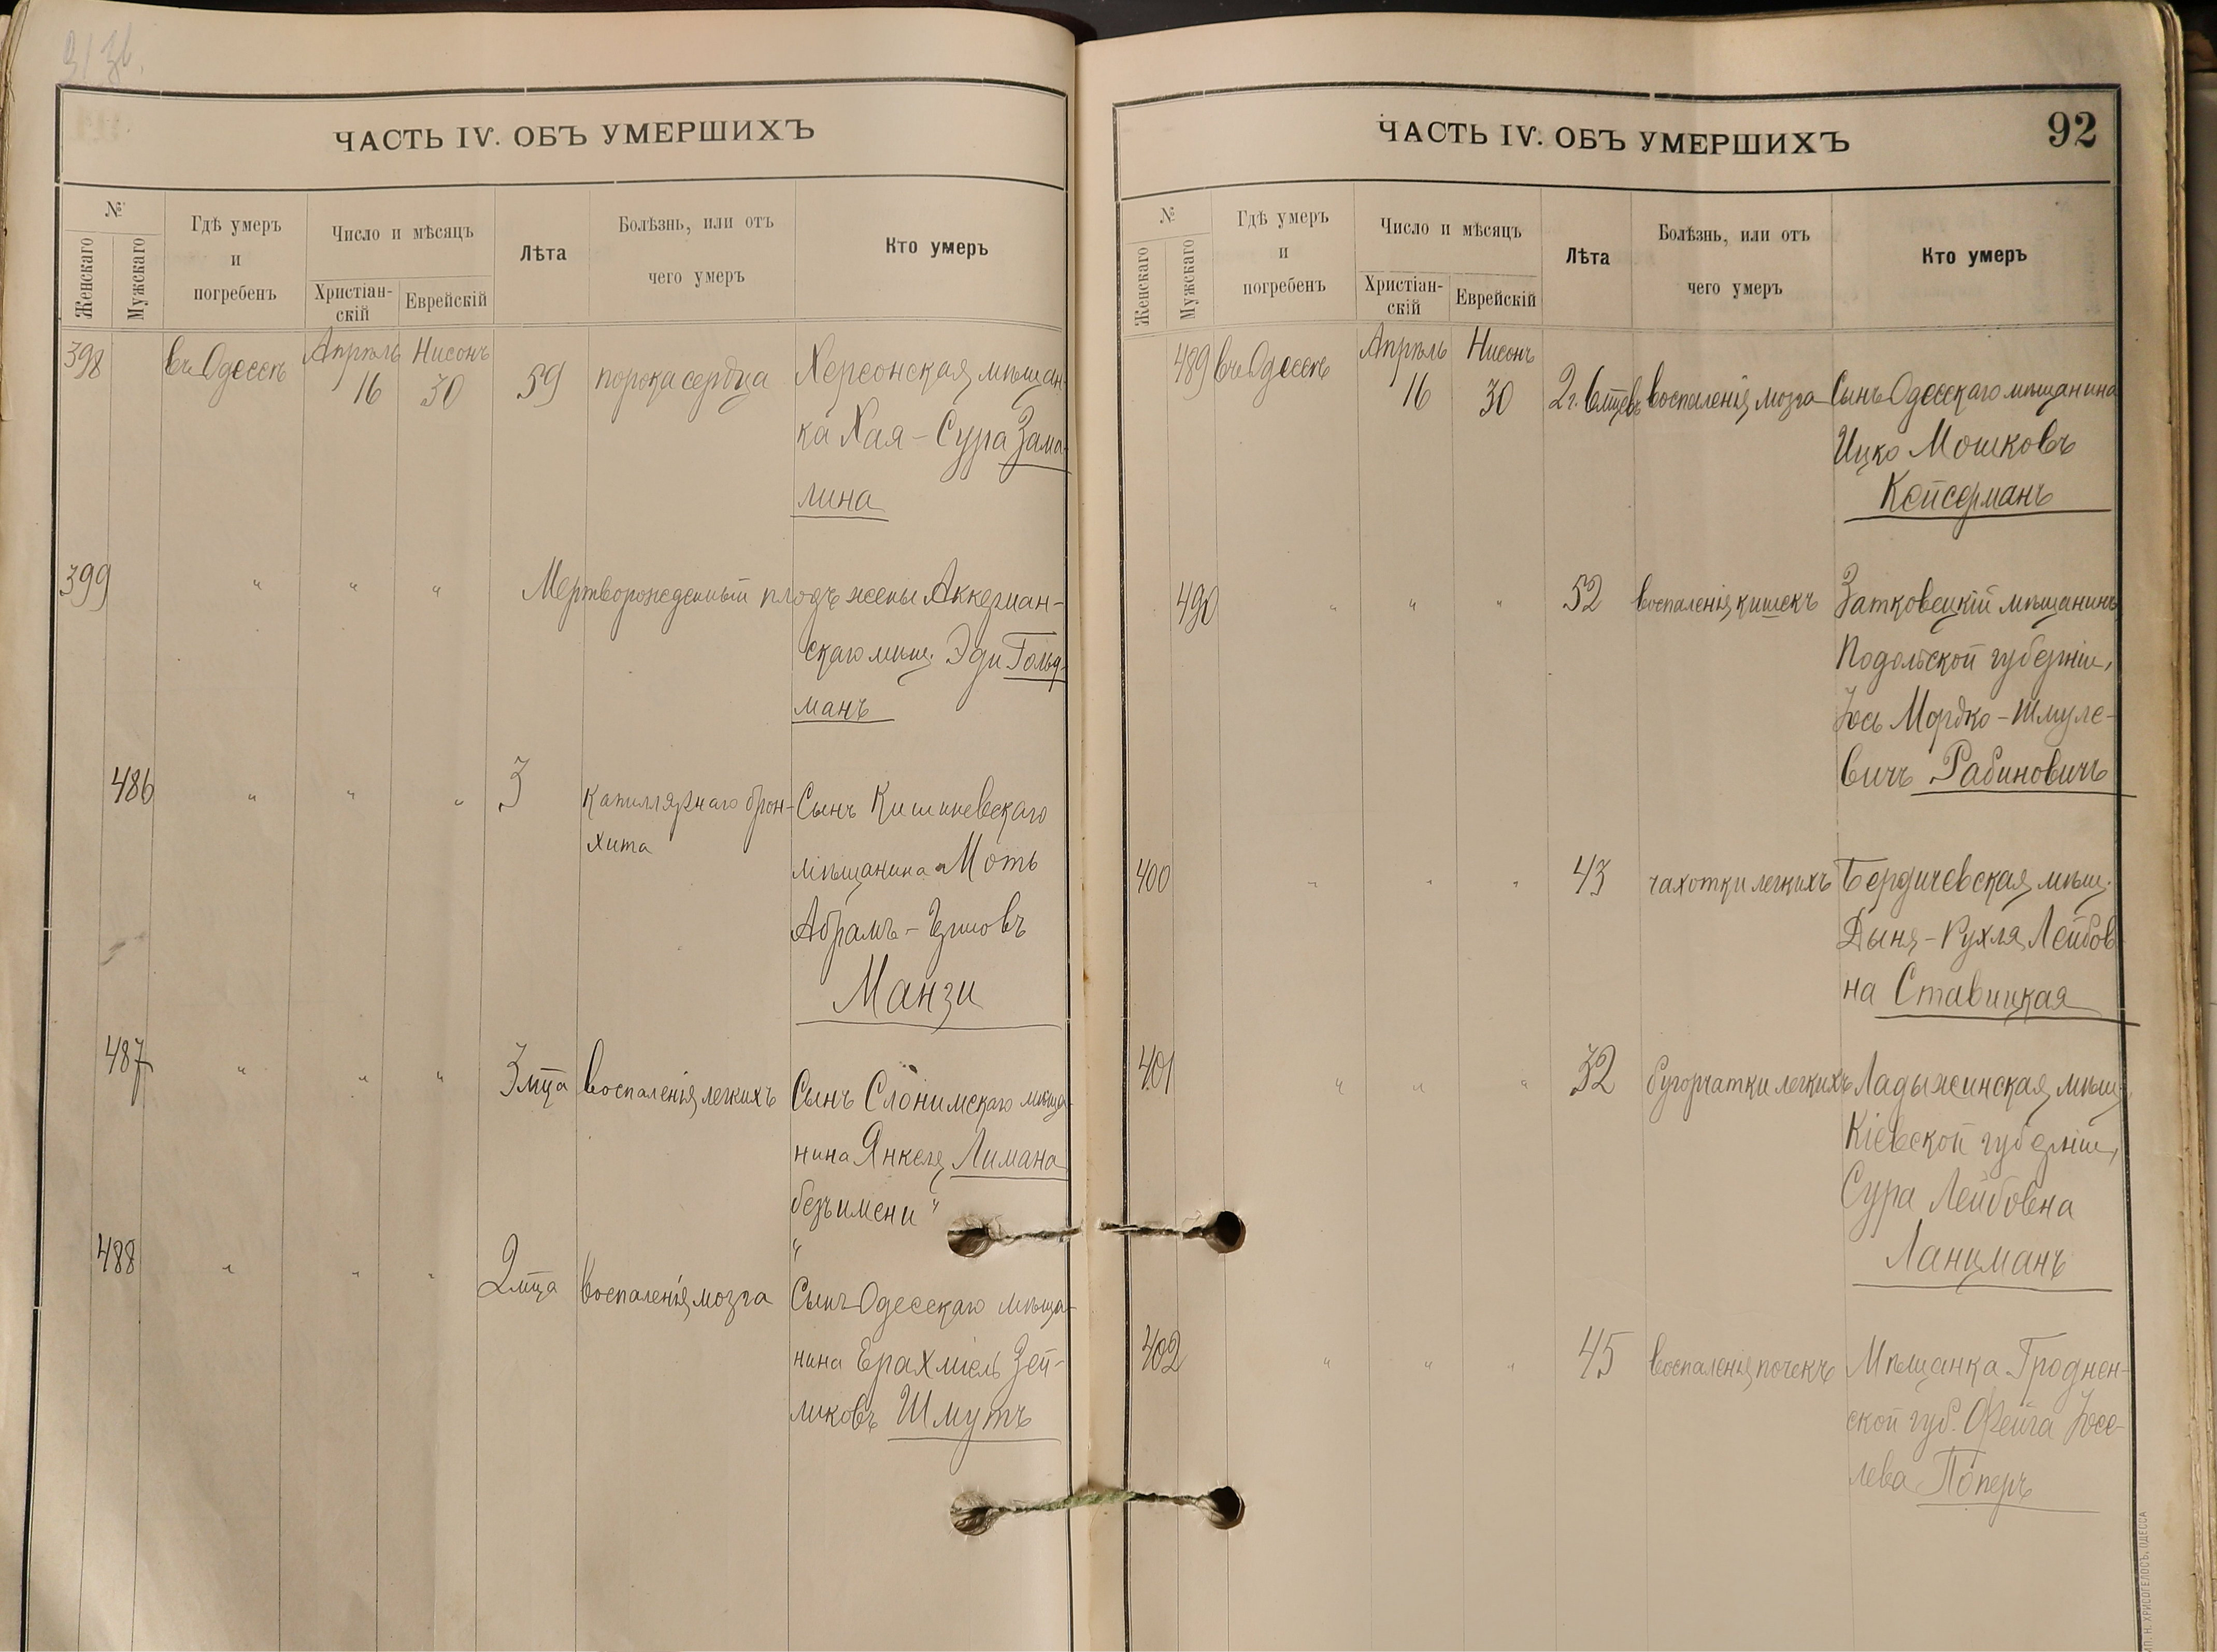 ЧАСТЬ IV. ОБЪ УМЕРШИХЪ
№
Женскаго
Мужскаго
Гдѣ умеръ
и
погребенъ
Число и мѣсяцъ
Христіан-
скій
Еврейскій
Лѣта
Болѣзнь, или отъ
чего умеръ
Кто умеръ
398 въ Одессѣ Апрѣль 16 Нисонъ 30 59 порока сердца Херсонская мѣщан-
ка Хая-Сура Зама-
лина
399 " " " Мертворожденный плодъ жены Аккерман-
скаго мѣщ. Эди Гольд-
манъ
486 " " " 3 капиллярнаго брон- Сынъ Кишиневскаго
хита
мѣщанина Моть
Абрамъ-
Манзи
487 " " " 3 мца воспаленія легкихъ Сынъ Слонимскаго мѣща-
нина Янкеля Лимана
безъ имени "
"
488 " " " 2 мца воспаленія мозга Сынъ Одесскаго мѣща-
нина Ерахміель Зей-
ликовъ Шмутъ
ЧАСТЬ IV. ОБЪ УМЕРШИХЪ
92
№
Женскаго
Мужскаго
Гдѣ умеръ
и
погребенъ
Число и мѣсяцъ
Христіан-
скій
Еврейскій
Лѣта
Болѣзнь, или отъ
чего умеръ
Кто умеръ
489 въ Одессѣ Апрѣль 16 Нисонъ 30 2 г. 6 мцевъ воспаленія мозга Сынъ Одесскаго мѣщанина
Ицко Мошковъ
Кейсерманъ
490 " " " 52 воспаленія кишекъ Затковецкій мѣщанинъ
Подольской губерніи,
Іось Мордко-Шмуле-
вичъ Рабиновичъ
400 " " " 43 чахотки легкихъ Бердичевская мѣщ.
Дыня-Рухля Лейбов-
на Ставицкая
401 " " " 32 бугорчатки легкихъ Ладыжинская мѣщ.
Кіевской губерніи,
Сура Лейбовна
Ланцманъ
402 " " " 45 воспаленія почекъ Мѣщанка Гроднен-
ской губ. Фейга Іосе-
лева Поперъ
ТИП. Н. ХРИСОГЕЛОСЪ, ОДЕССА